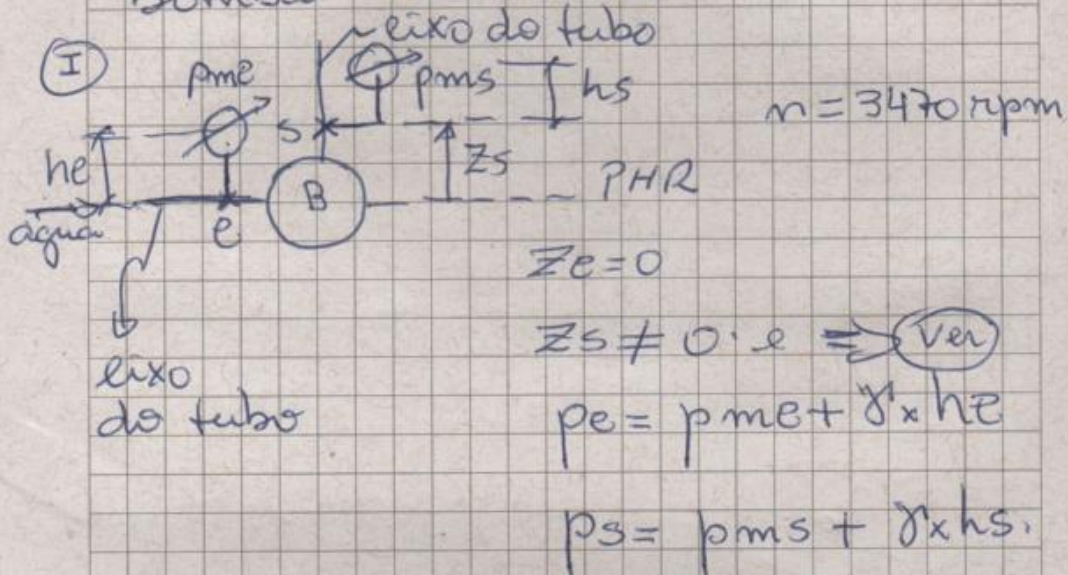 I
eixo do tubo
pme
pms
hs
n = 3470 rpm
s
he
zs
PHR
B
água
e
Ze = 0
eixo
do tubo
Zs ≠ 0 · e ⇒ Ver
pe = pme + γ x he
ps = pms + γ x hs.